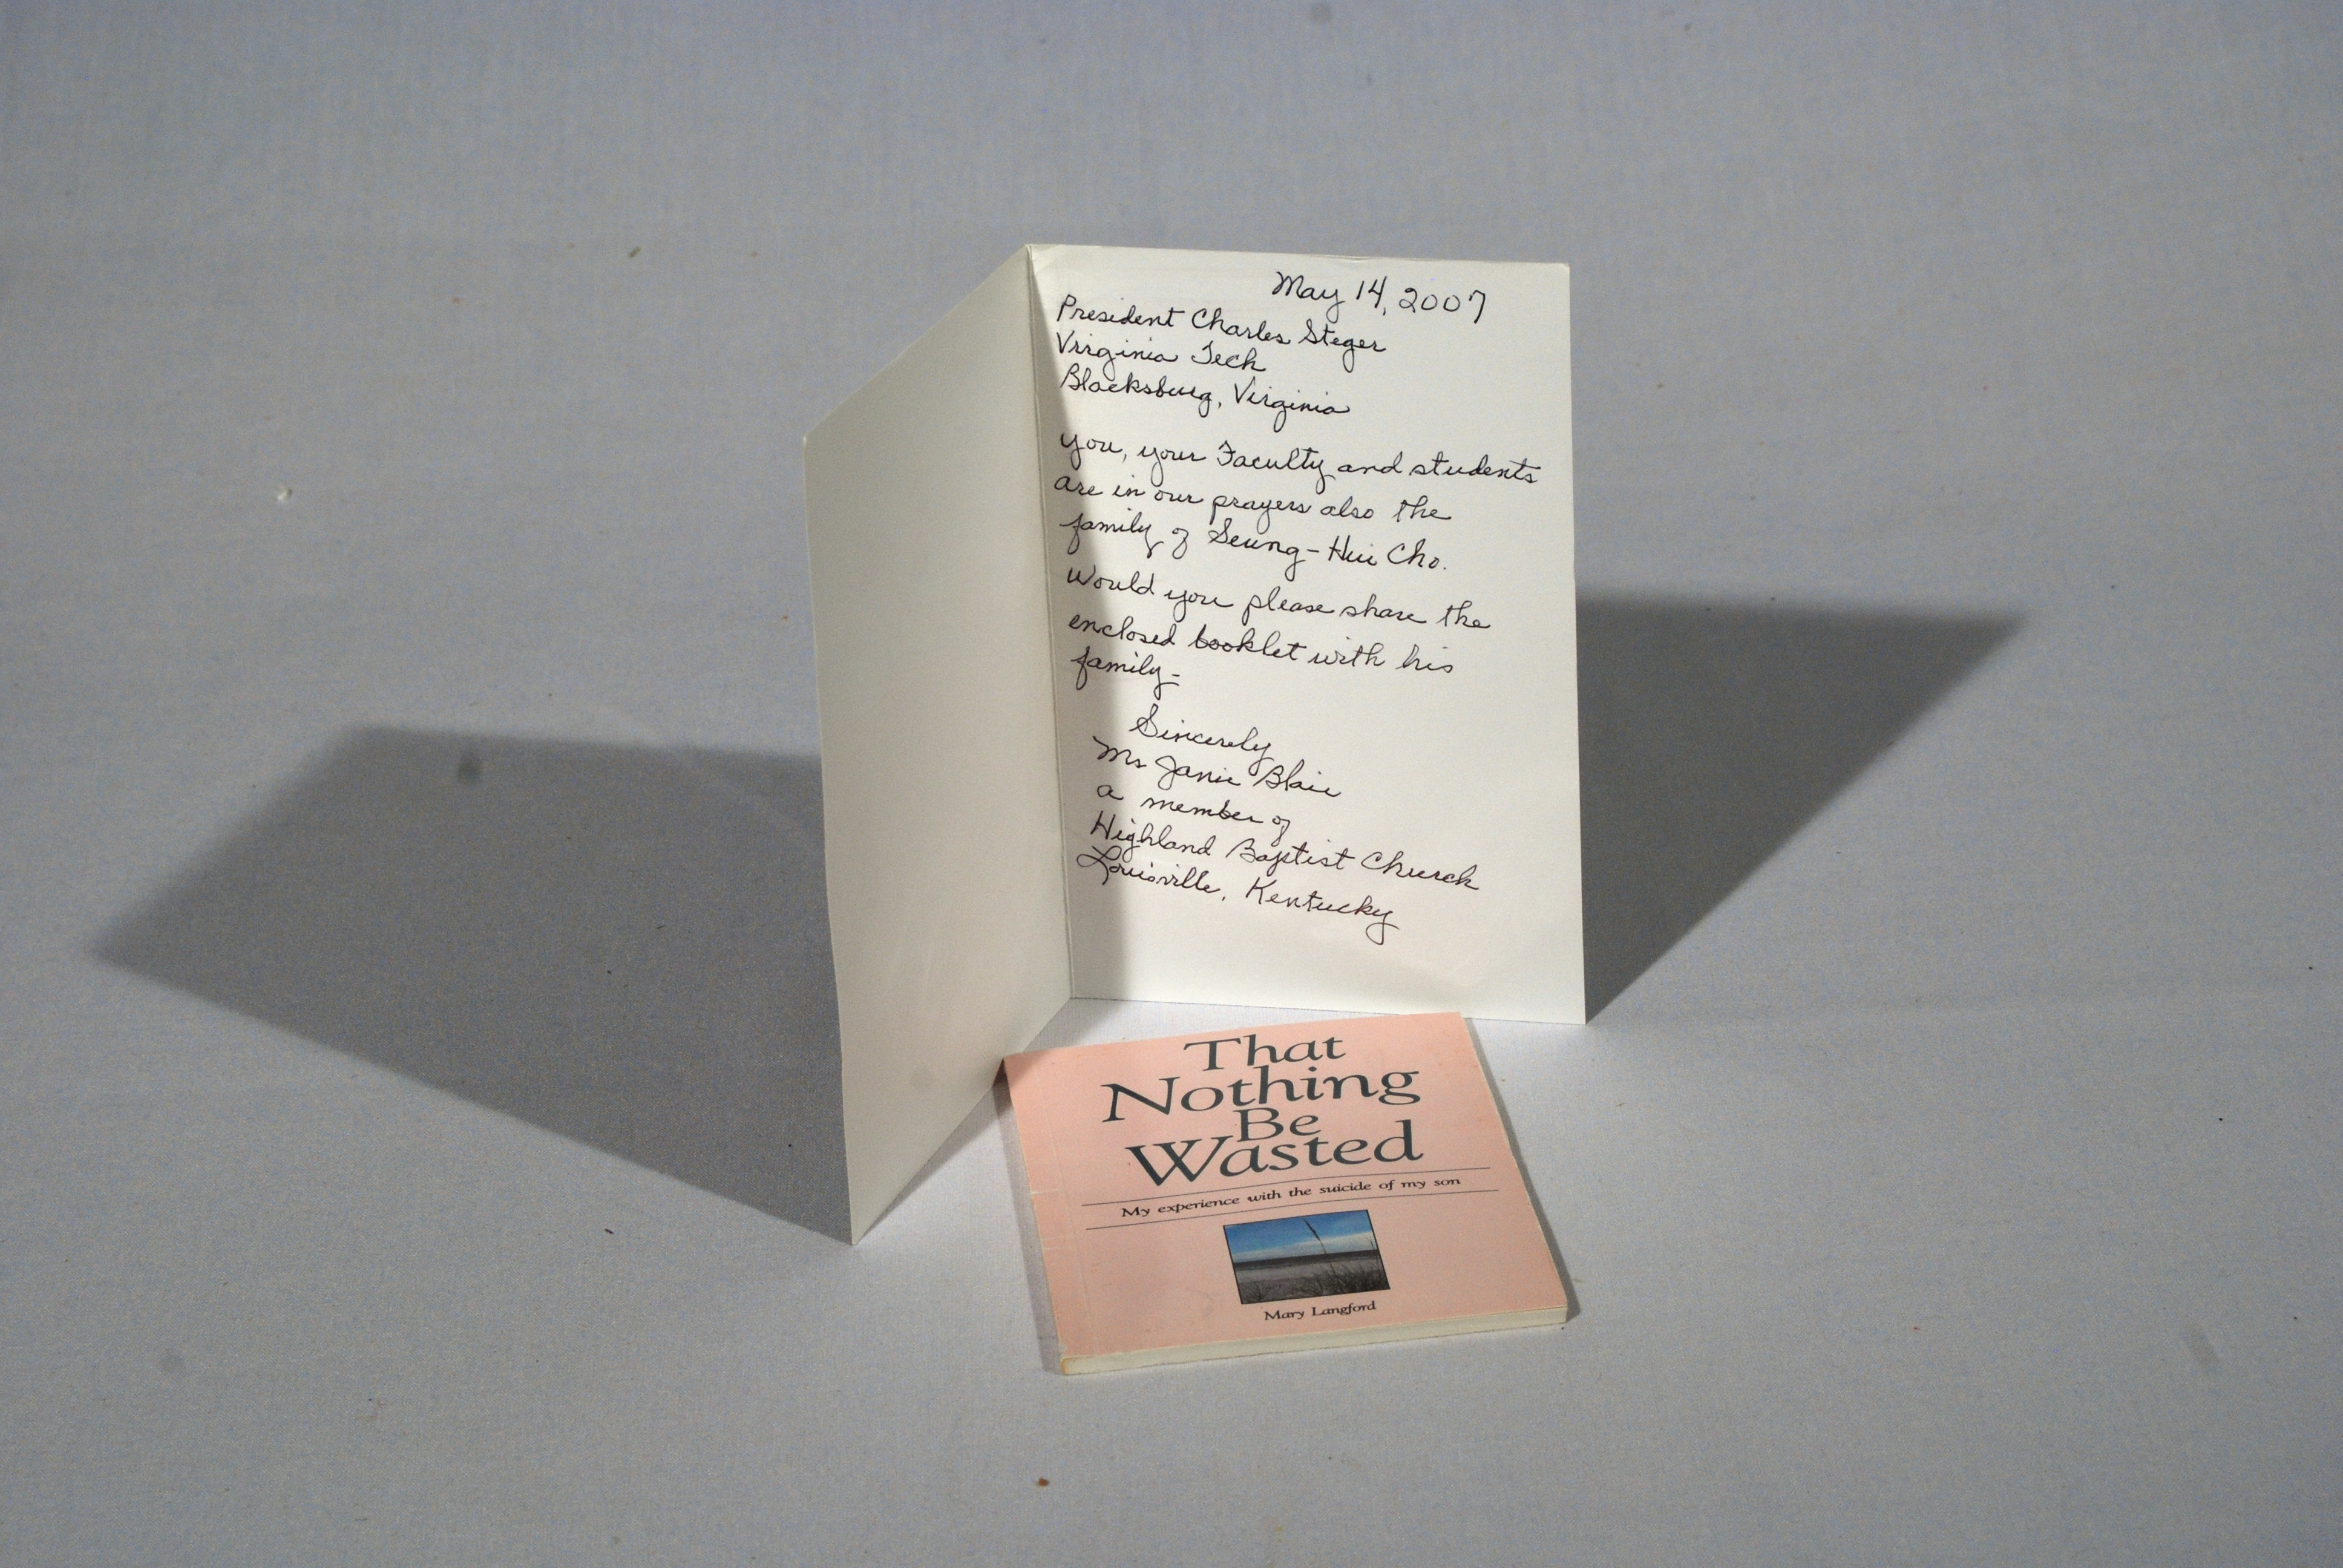 May 14, 2007
President Charles Steger
Virginia Tech
Blacksburg, Virginia
You, your Faculty and students
are in our prayers also the
family of Seung-Hui Cho.
Would you please share the
enclosed booklet with his
family-
Sincerely
Ms Janie Blair
a member of
Highland Baptist Church
Louisville, Kentucky
That
Nothing
Be
Wasted
My experience with the suicide of my son
Mary Langford